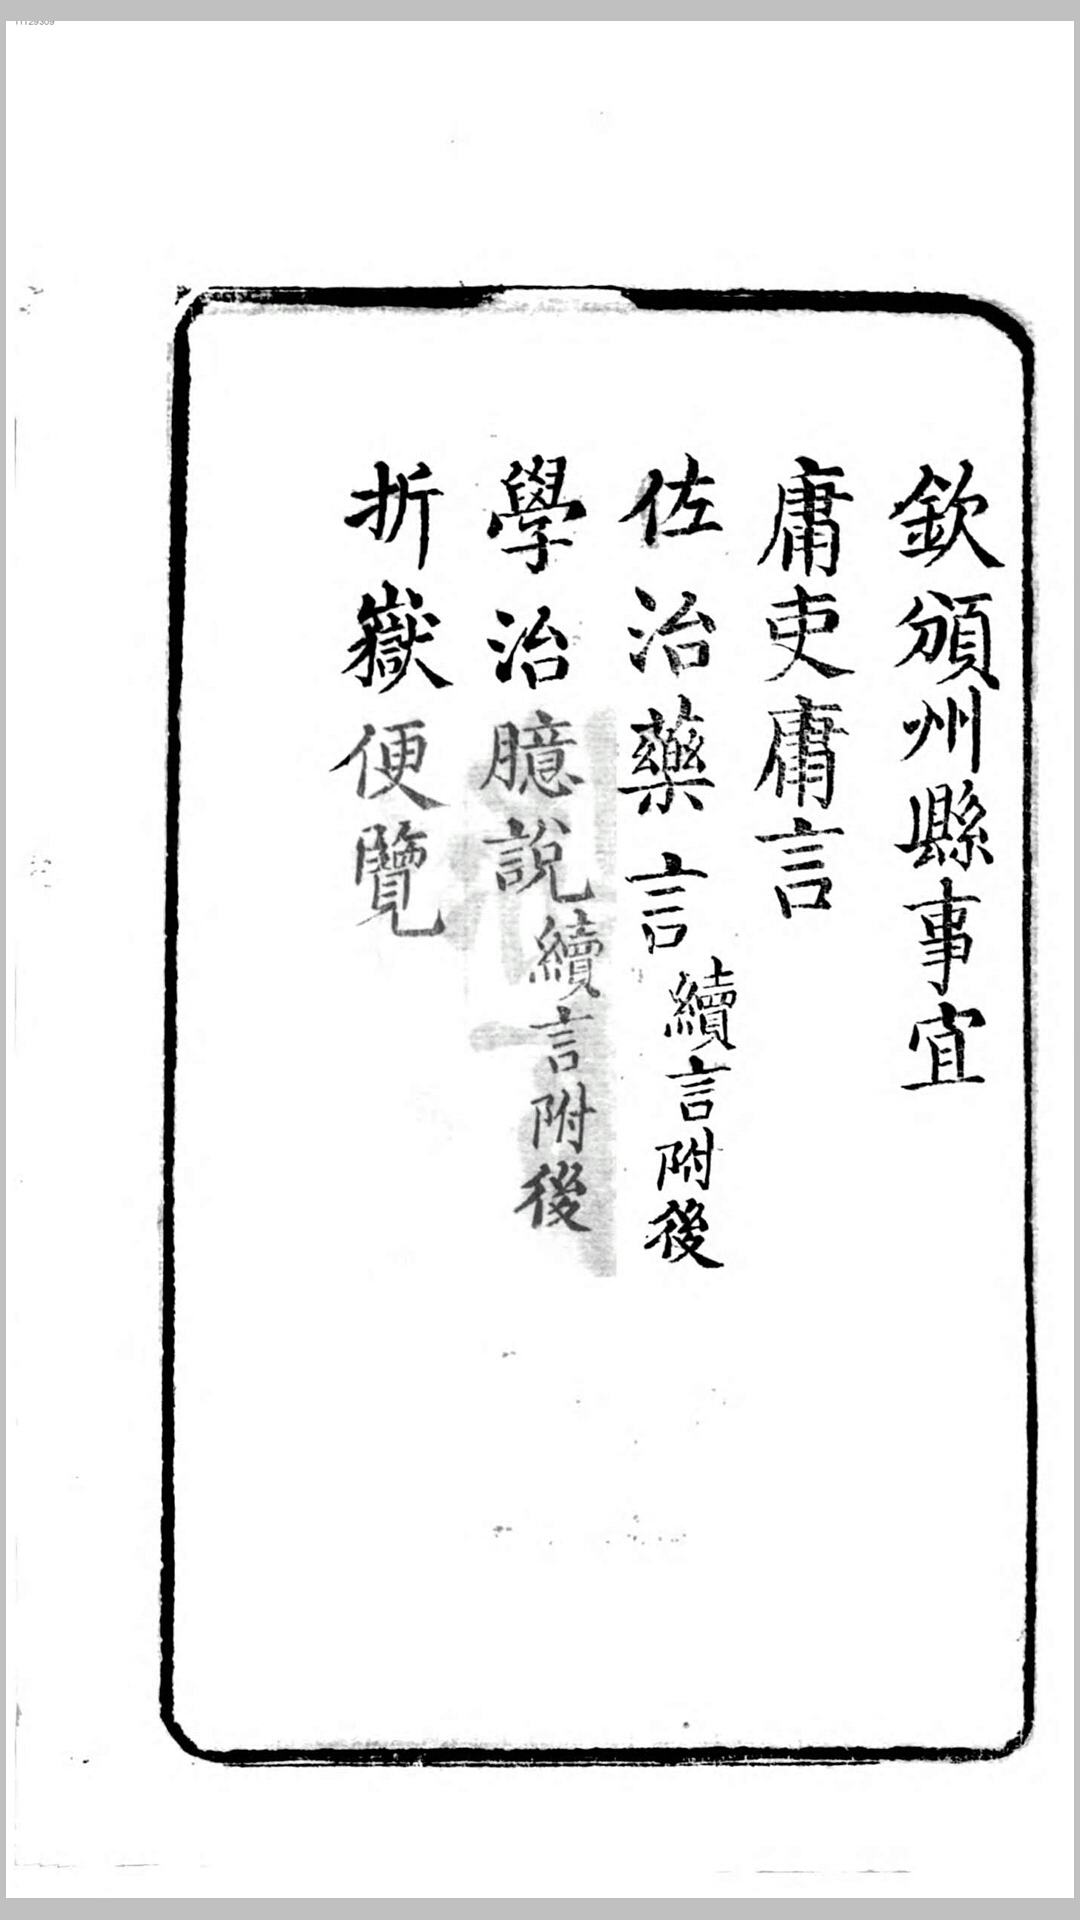 欽頒州縣事宜
庸吏庸言
佐治藥言續言附後
學治臆說續言附後
折嶽便覽